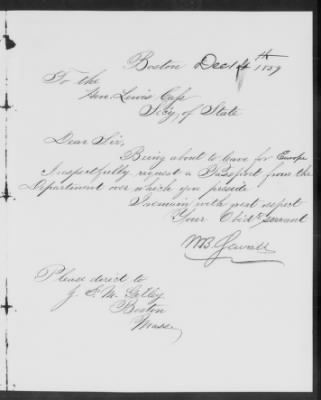 Boston Dec 14th 1859
To the
Hon. Lewis Cass
Sec'y of State
Dear Sir,
Being about to leave for Europe
I respectfully request a Passport from the
Department over which you preside
I remain with great respect
Your Obdt. servant
Please direct to
Boston
Mass